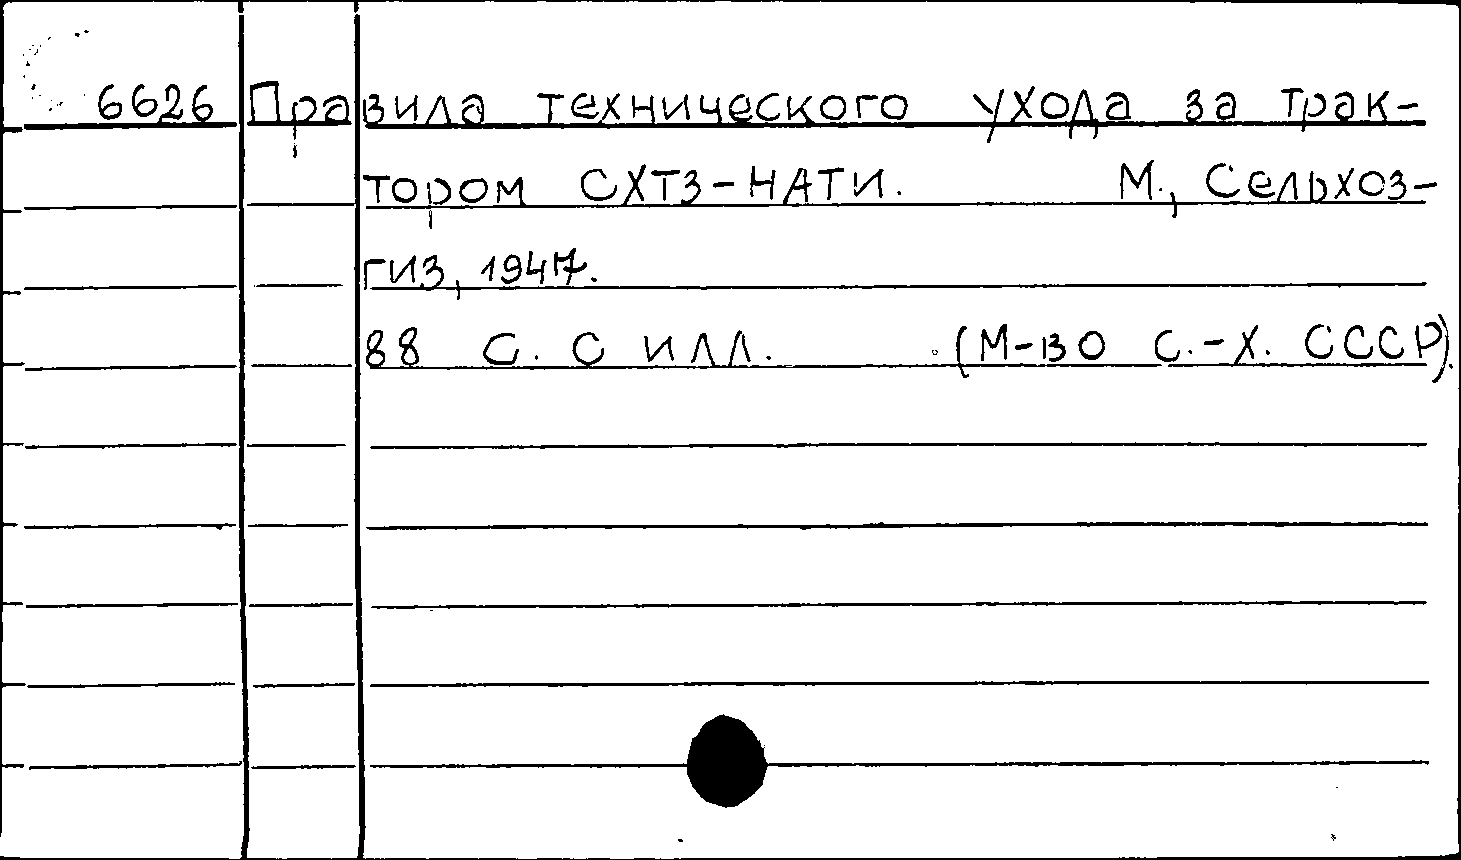 6626 Правила технического ухода за трак-
тором СХТЗ-НАТИ. М., Сельхоз-
гиз, 1947.
88 с. с илл. (М-во с.-х. СССР).